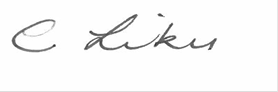 C Liku